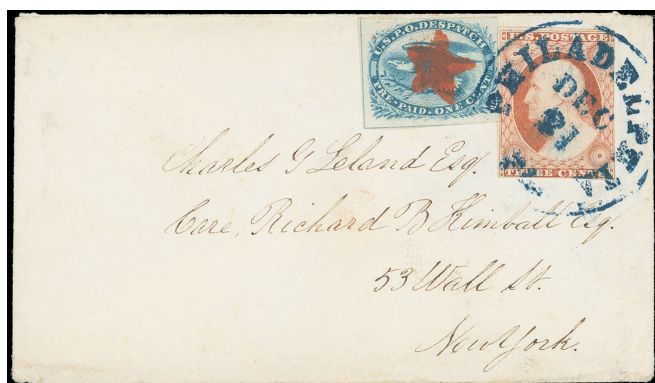 U.S.P.O. DESPATCH
PRE-PAID. ONE CENT.
U.S. POSTAGE
THREE CENTS
PHILADELPHIA
DEC
Charles G Leland Esq.
Care, Richard B Kimball Esq.
53 Wall St.
New York.